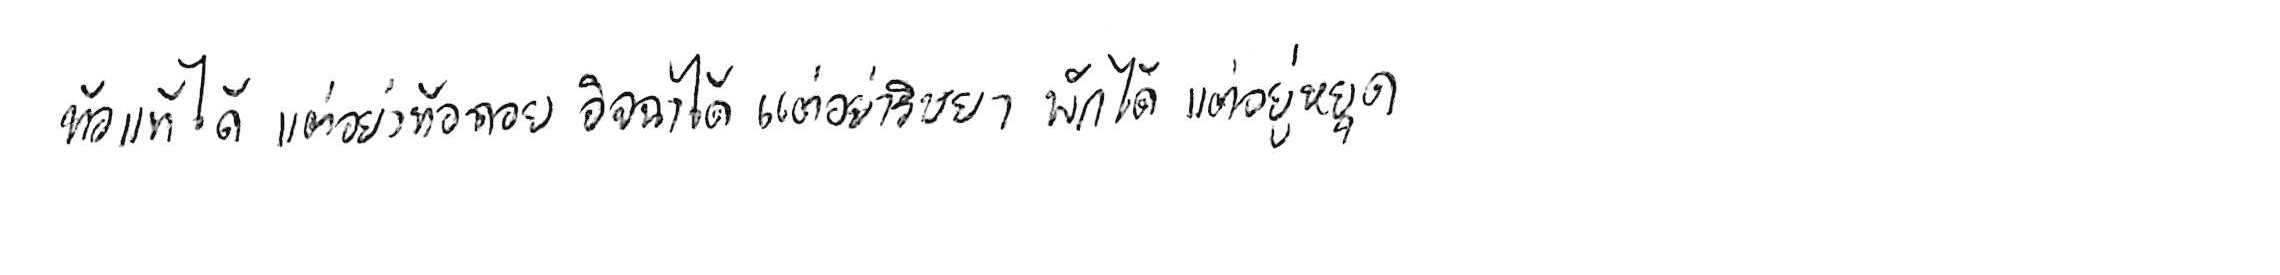 ท้อแท้ได้ แต่อย่าท้อถอย อิจฉาได้ แต่อย่าริษยา พักได้ แต่อยู่หยุด